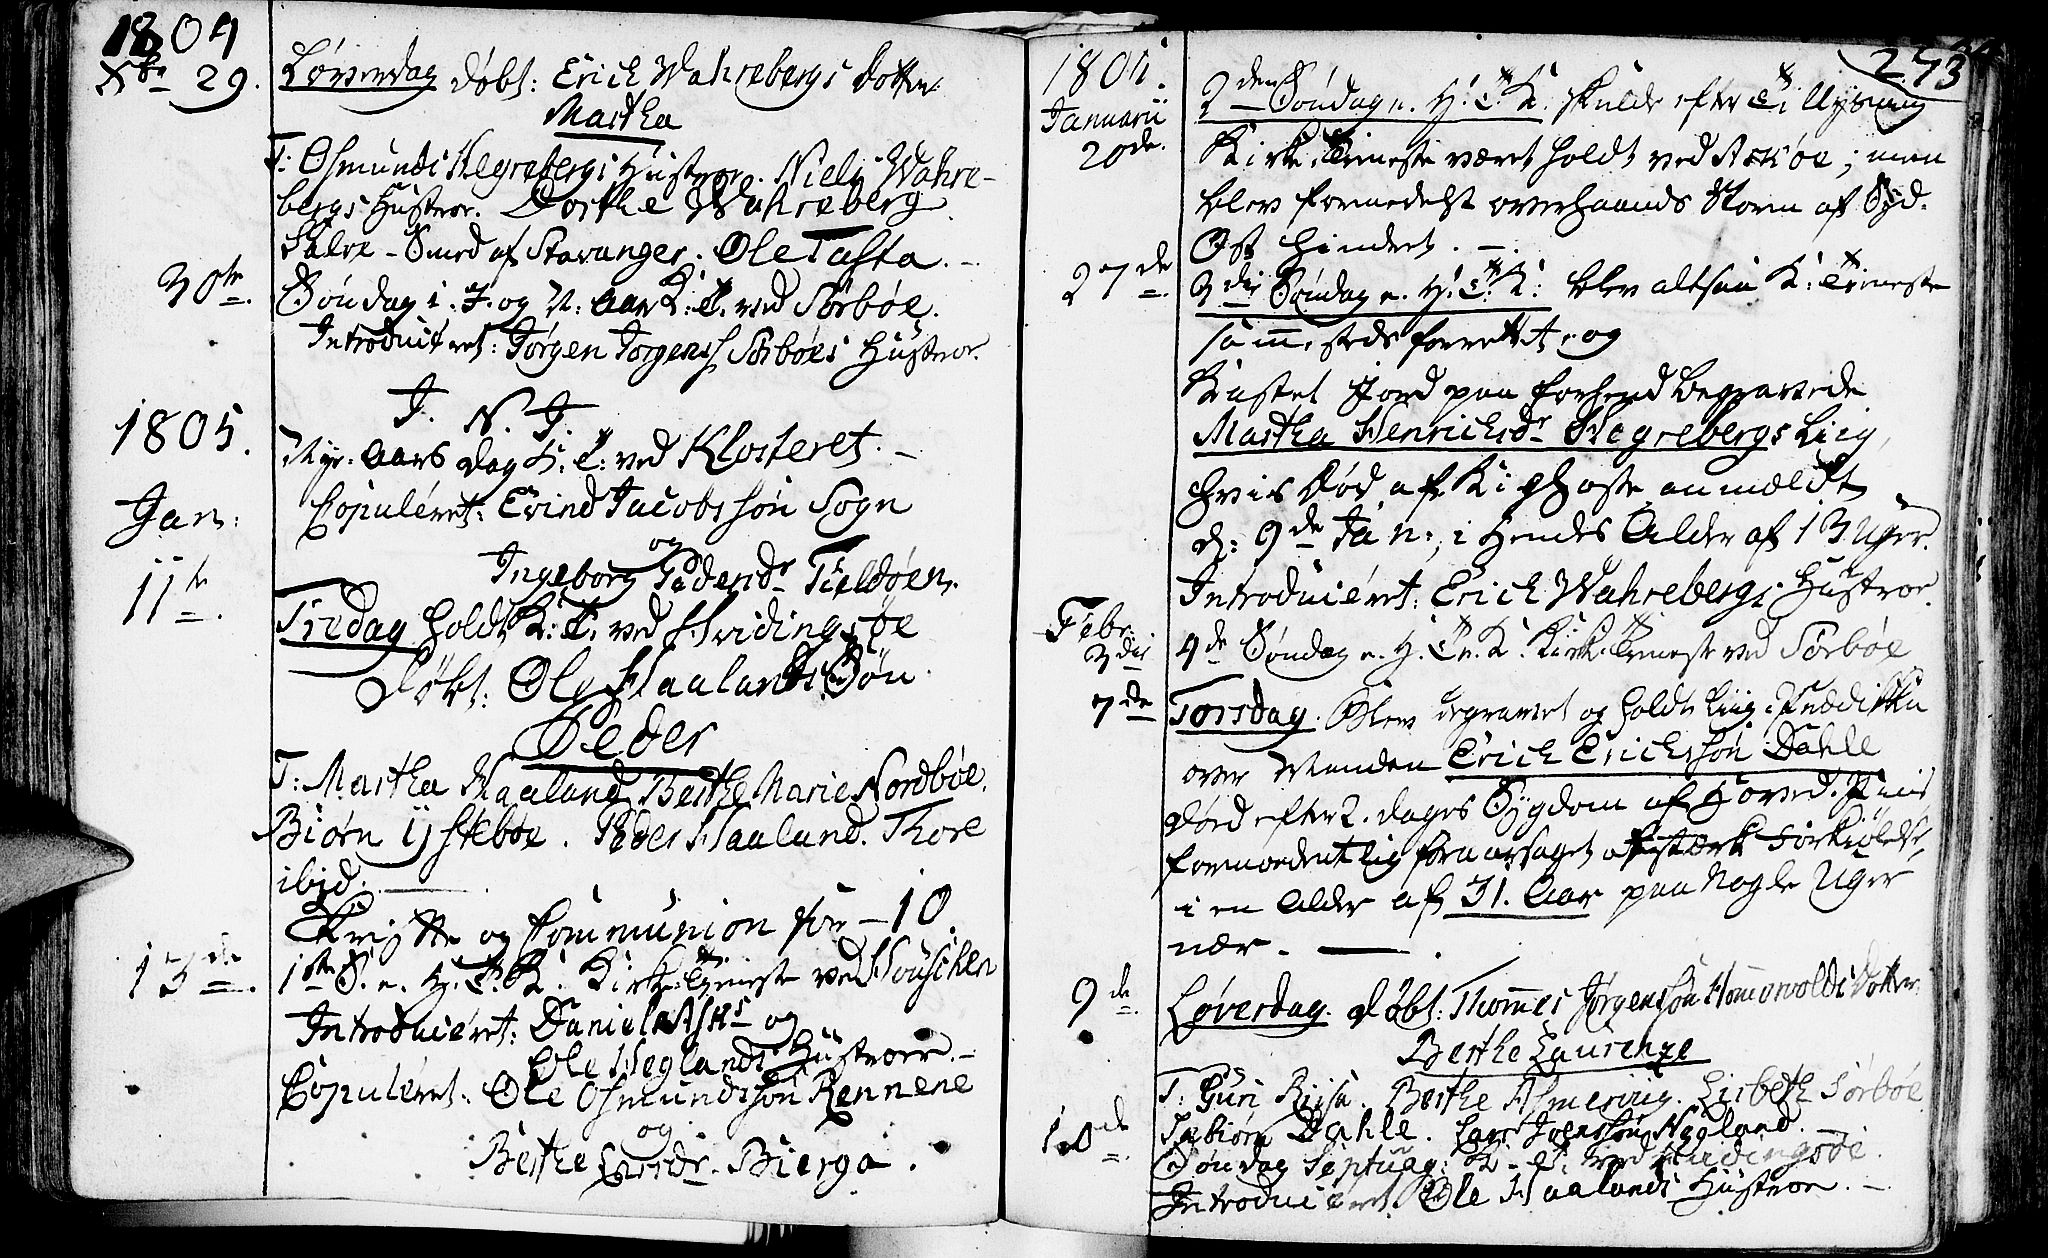 1804
Xbr 29. Løverdag døbt: Erich Wahrebergs dotter
Martha
T: Osmunds Hegrebergs Hustroe. Niels Wahre-
bergs Hustroe. Dorthe Wahreberg
Salve - Smed af Stavanger. Ole Tasta. -
30te. Søndag i. J. og N. Aar K: T. ved Sørbøe.
Introduceret: Jørgen Jørgens Sørbøes Hustroe.
J. N. J.
1805. Nye-Aars dag K. T: ved Klosteret. -
Jan: Copuleret: Evind Jacobssøn Sogn
og
Ingeborg Pedersdr Fieldøen.
11te. Fredag holdt K: T. ved Hvidingsøe
Døbt: Ole Haalands Søn
Peder
T: Martha Haaland, Berthe Marie Nordbøe.
Biørn Ystebøe. Peder Haaland. Thore
ibid. -
Skrifte og Communion for - 10.
13de. 1ste S. e. H. 3. K. Kirke-Tieneste ved Houschen
Introduceret: Daniel Ask's og
Ole Heglands Hustroer. -
Copuleret: Ole Osmundssøn Rennene
og
Berthe Larsdr. Bierga.
273
1805.
Januarii
20de. 2den Søndag e. H. 3. K. skulde efter Tillysning
Kirke-Tieneste været holdt ved Askøe; men
blev formedelst overhaands Storm af Syd-
Ost hindret. -
27de. 3die Søndag e. H. 3. K: blev altsaa K: Tieneste
sammesteds forrettet, og
Kastet Jord paa forhend begravede
Martha Henrichsdr Hegrebergs Liig,
hvis Død af Kighoste anmeldt
d: 9de Jan:, i Hendes Alder af 13 Uger.
Introduceret: Erich Wahrebergs Hustroe.
Febr.
3die 4de Søndag e. H. 3. K. Kirke-Tieneste ved Sørbøe
7de Torsdag. Blev begravet og holdt Liig-Prædiken
over Manden Erich Erichssøn Dahle
død efter 2. dages Sygdom af Hoved-Pine
formodentlig foraarsaget af stærk Forkiølelse,
i en Alder af 31. Aar paa nogle Uger
nær. -
9de. Løverdag. døbt: Thommes Jørgenssøn Hommervolds dotter:
Berthe Laurenze
T: Guri Riisa. Berthe Asmervig. Lisbeth Sørbøe
Tobiørn Dahle. Lars Joenssøn Hegland. -
10de. Søndag Septuag: K. T: ved Hvidingsøe.
Introduceret: Ole Haalands Hustroe. -